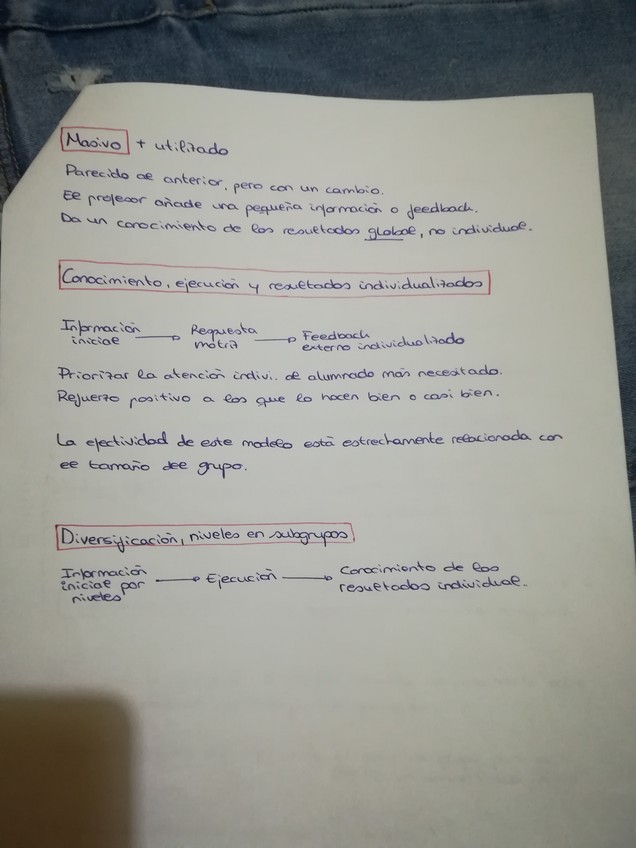 Masivo + utilizado
Parecido al anterior, pero con un cambio.
El profesor añade una pequeña información o feedback.
Da un conocimiento de los resultados global, no individual.
Conocimiento, ejecución y resultados individualizados
Información inicial → Respuesta motriz → Feedback externo individualizado
Priorizar la atención indivi. al alumnado más necesitado.
Refuerzo positivo a los que lo hacen bien o casi bien.
La efectividad de este modelo está estrechamente relacionada con
el tamaño del grupo.
Diversificación, niveles en subgrupos
Información inicial por niveles → Ejecución → Conocimiento de los resultados individual.